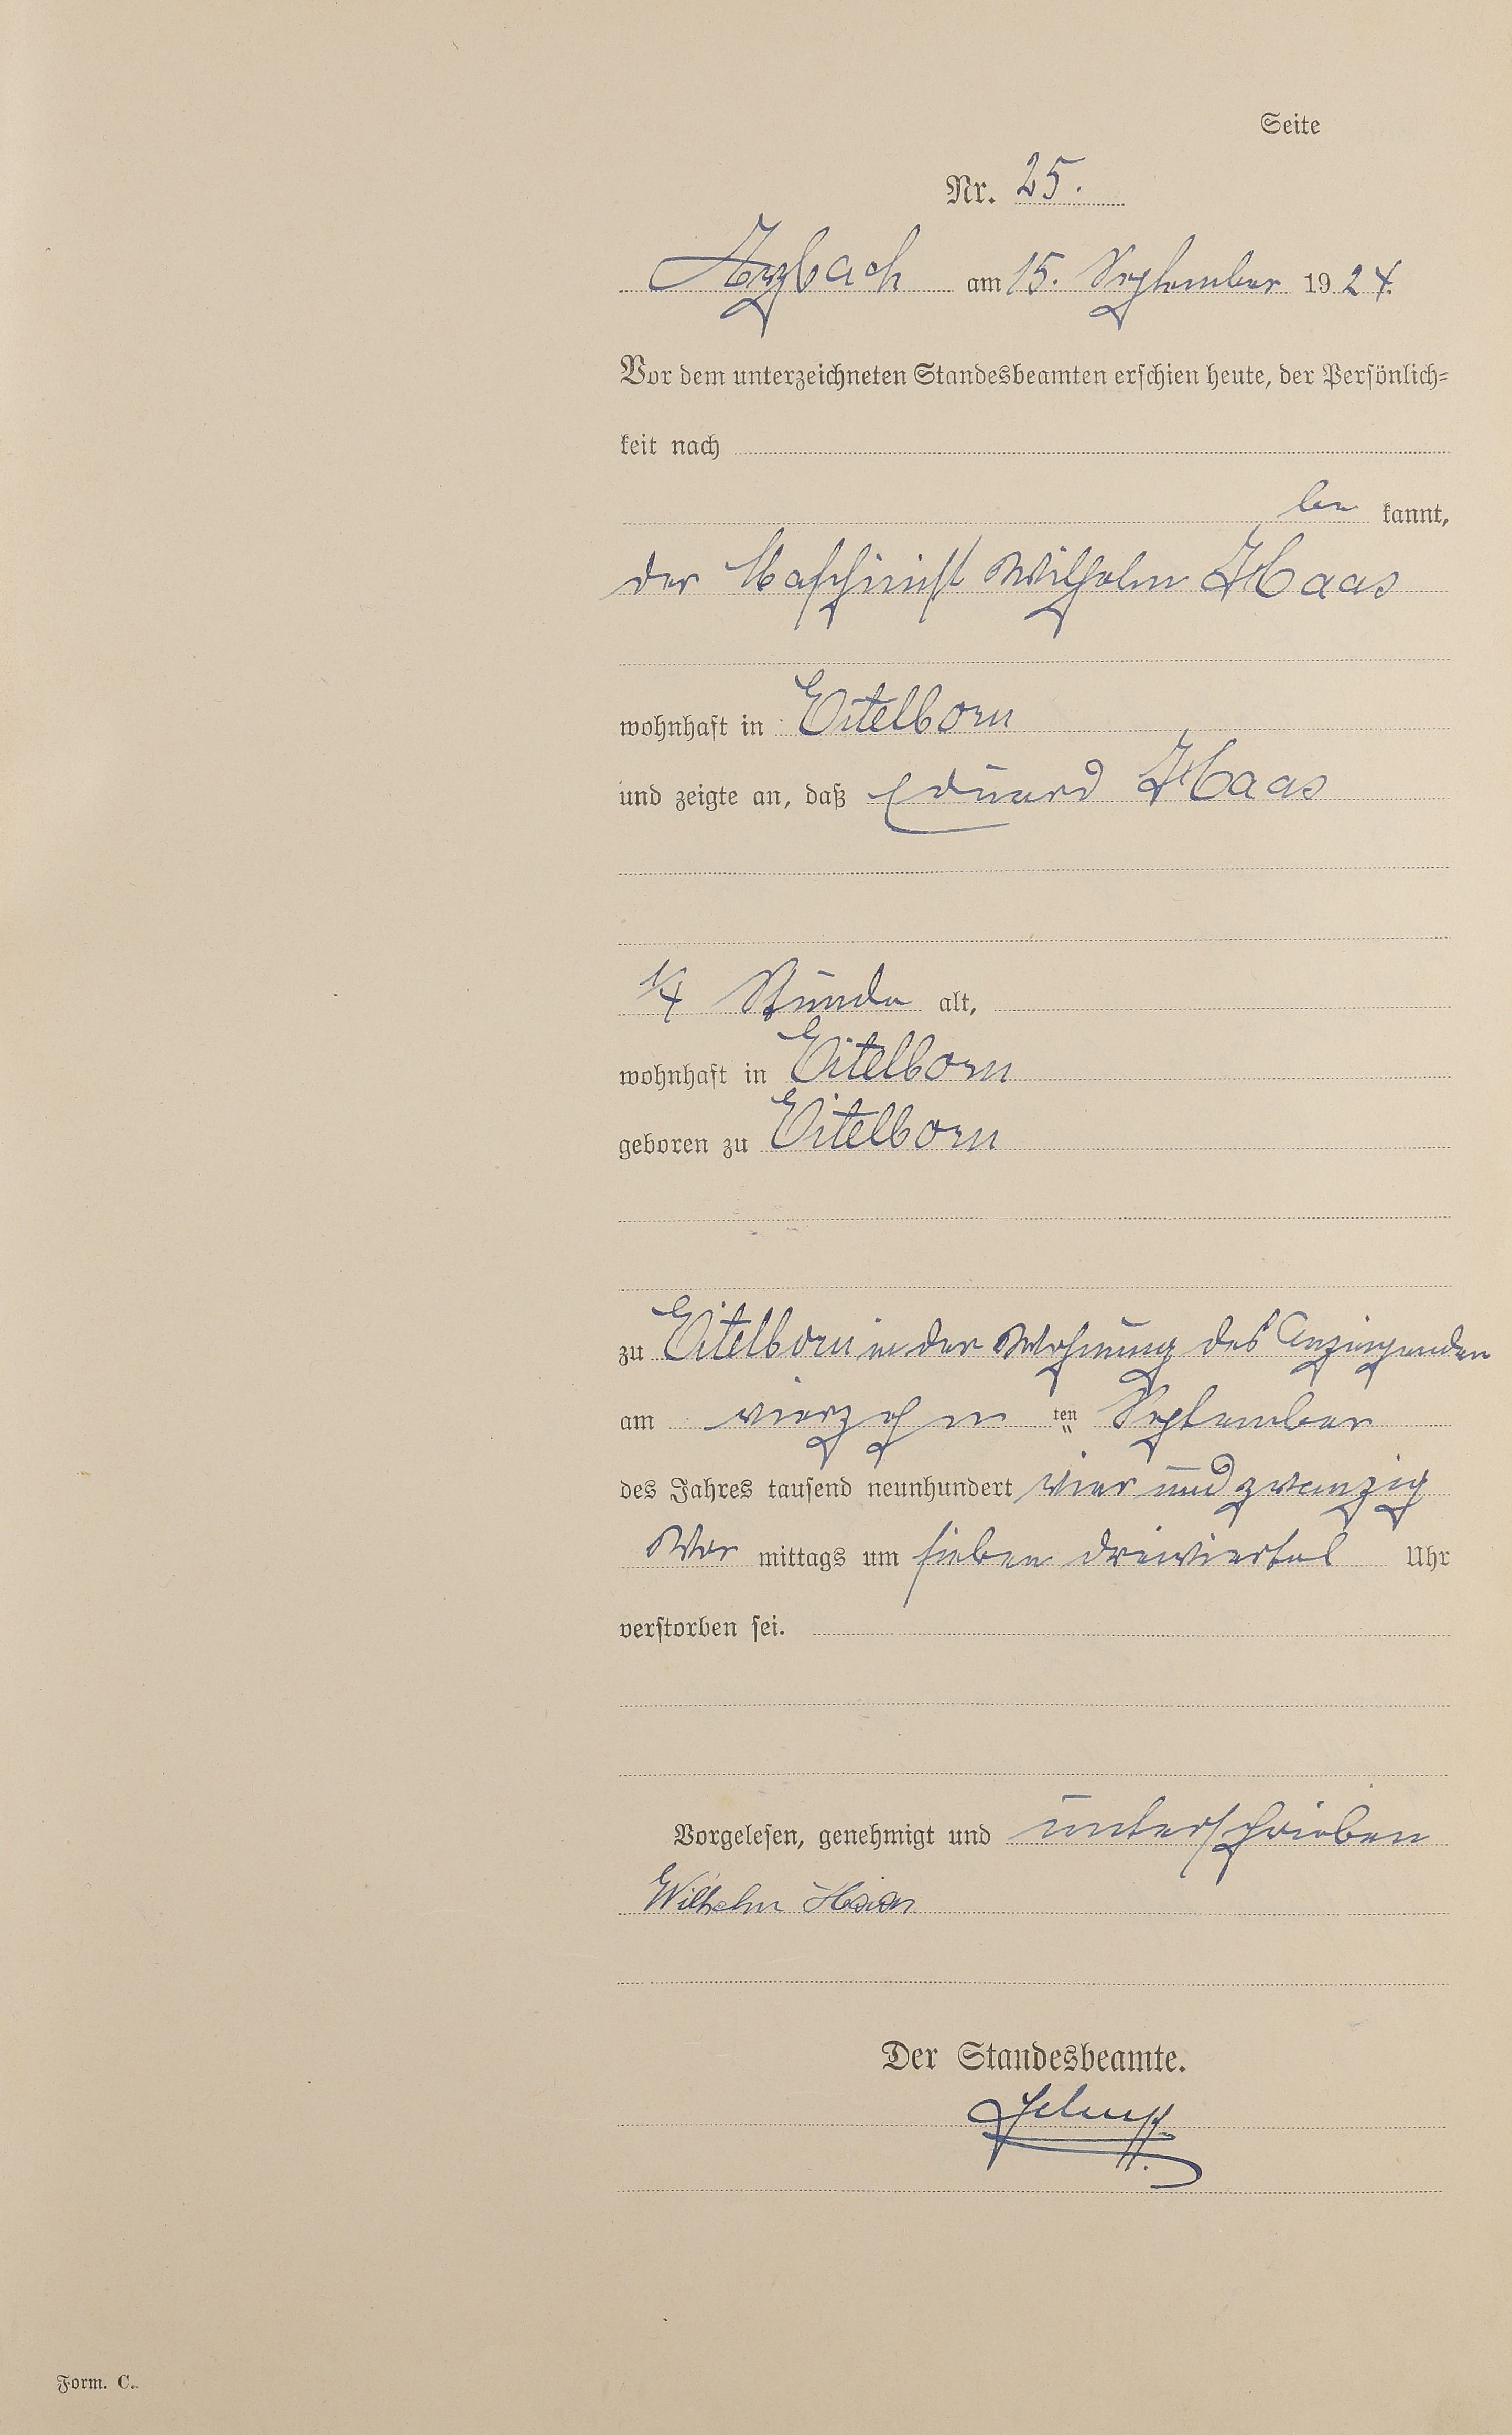 Seite
Nr. 25.
Arzbach am 15. September 1924.
Vor dem unterzeichneten Standesbeamten erschien heute, der Persönlich-
keit nach
be kannt,
der Maschinist Wilhelm Haas
wohnhaft in Eitelborn
und zeigte an, daß Eduard Haas
1/4 Stunde alt,
wohnhaft in Eitelborn
geboren zu Eitelborn
zu Eitelborn in der Wohnung des Anzeigenden
am vierzehn ten September
des Jahres tausend neunhundert vier und zwanzig
Vor mittags um sieben dreiviertel Uhr
verstorben sei.
Vorgelesen, genehmigt und unterschrieben
Wilhelm Haas
Der Standesbeamte.
Form. C.